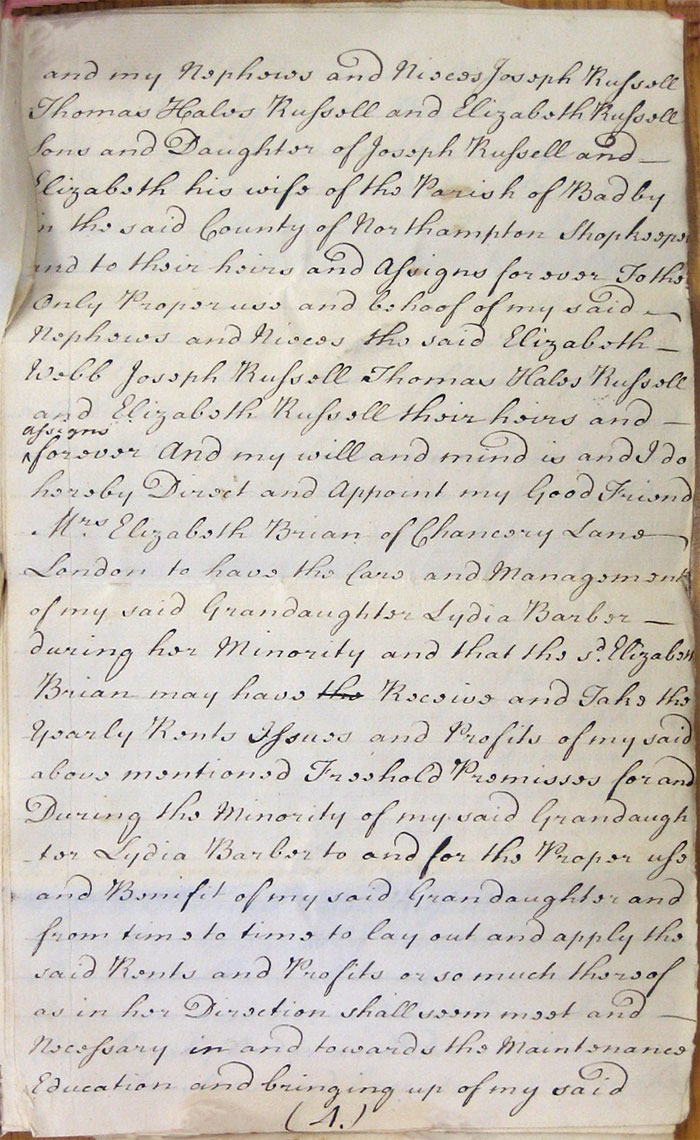 and my Nephews and Nieces Joseph Russell
Thomas Hales Russell and Elizabeth Russell
Sons and Daughter of Joseph Russell and
Elizabeth his wife of the Parish of Badby
in the said County of Northampton Shopkeeper
and to their heirs and Assigns for ever To the
Only Proper use and behoof of my said
Nephews and Nieces the said Elizabeth
Webb Joseph Russell Thomas Hales Russell
and Elizabeth Russell their heirs and
assigns
forever And my will and mind is and I do
hereby Direct and Appoint my Good Friend
Mrs Elizabeth Brian of Chancery Lane
London to have the Care and Management
of my said Grandaughter Lydia Barber
during her Minority and that the sd. Elizabeth
Brian may have the Receive and Take the
Yearly Rents Issues and Profits of my said
above mentioned Freehold Premisses for and
During the Minority of my said Grandaugh
ter Lydia Barber to and for the Proper use
and Benifit of my said Grandaughter and
from time to time to lay out and apply the
said Rents and Profits or so much thereof
as in her Direction shall seem meet and
Necessary in and towards the Maintenance
Education and bringing up of my said
(4.)